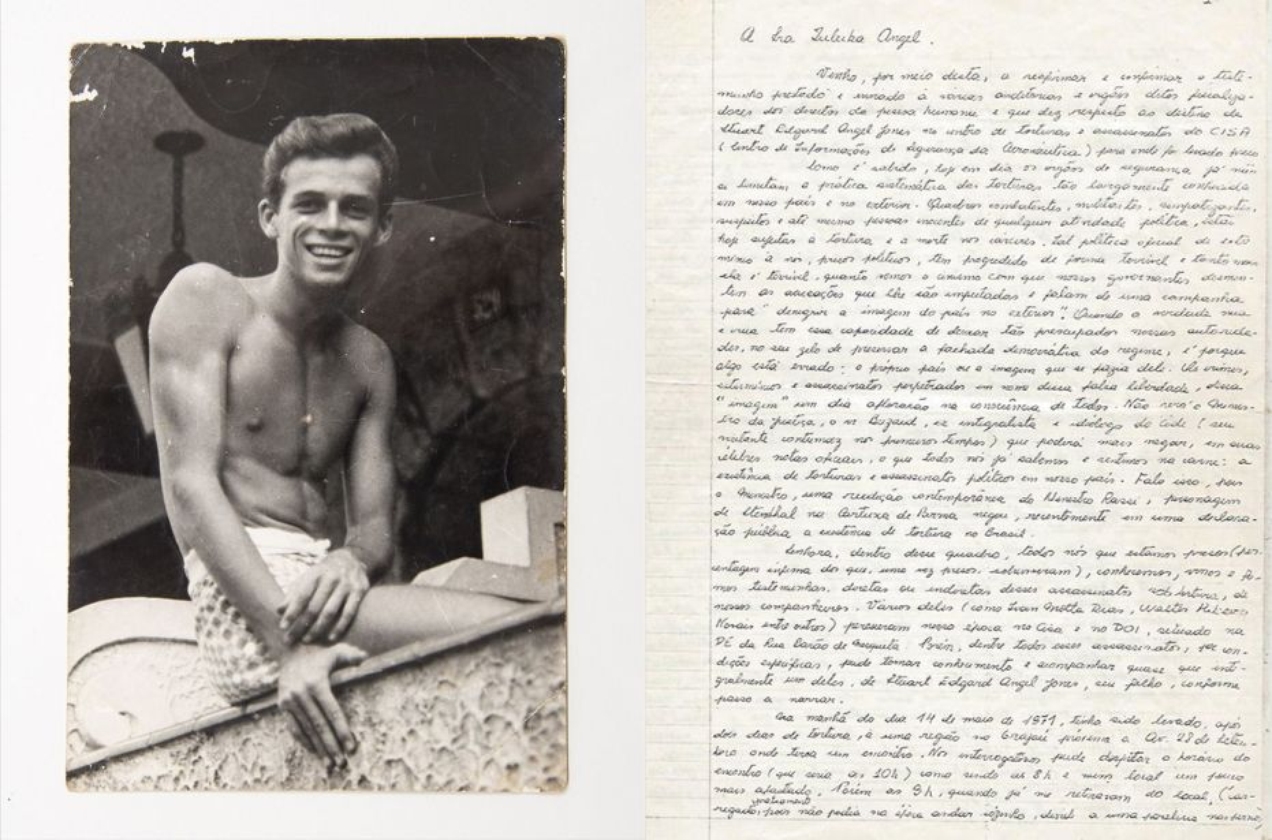 A Sra Zuleika Angel.
Venho, por meio desta, a reafirmar e confirmar o teste-
munho prestado e enviado à várias auditorias e orgãos ditos fiscaliza-
dores dos direitos da pessoa humana e que diz respeito ao destino de
Stuart Edgard Angel Jones no centro de torturas e assassinatos do CISA
(Centro de Informações de Segurança da Aeronáutica) para onde foi levado preso
Como é sabido, hoje em dia os orgãos de segurança já não
se limitam a prática sistemática das torturas tão largamente conhecida
em nosso país e no exterior. Quadros combatentes, militantes, simpatizantes,
suspeitos e até mesmo pessoas inocentes de qualquer atividade política, estão
hoje sujeitas a tortura e a morte nos cárceres. Tal política oficial de exter
mínio à nós, presos políticos, tem progredido de forma terrível e tanto mais
ela é terrível, quanto vemos o cinismo com que nossos governantes desmen-
tem as acusações que lhe são imputadas e falam de uma campanha
para "denegrir a imagem do país no exterior". Quando a verdade nua
e crua tem essa capacidade de deixar tão preocupados nossas autorida-
des, no seu zelo de preservar a fachada democrática do regime, é porque
algo está errado: o próprio país ou a imagem que se fazia dele. Os crimes,
extermínios e assassinatos perpetrados em nome dessa falsa liberdade, dessa
"imagem" um dia aflorarão na consciência de todos. Não será o Minis-
tro da justiça, o sr Buzaid, ex integralista e ideólogo do Cade (seu
militante contumaz nos primeiros tempos) que poderá mais negar, em suas
célebres notas oficiais, o que todos nós já sabemos e sentimos na carne: a
existência de torturas e assassinatos políticos em nosso país. Falo isso, pois
o Ministro, uma reedição contemporânea do Ministro Rassi, personagem
de Stendhal na Cartuxa de Parma negou, recentemente em uma declara-
ção pública a existência de tortura no Brasil.
Senhora, dentro desse quadro, todos nós que estamos presos (por-
centagem ínfima dos que, uma vez presos, sobreviveram), conhecemos, vimos e fo-
mos testemunhas diretas ou indiretas desses assassinatos sob tortura, de
nossos companheiros. Vários deles (como Ivan Motta Dias, Walter Ribeiro
Novais entre outros) pereceram nessa época no Cisa e no DOI, situado na
PE da Rua Barão de Mesquita. Porém, dentre todos esses assassinatos, por con-
dições específicas, pude tomar conhecimento e acompanhar quase que inte-
gralmente um deles, de Stuart Edgard Angel Jones, seu filho, conforme
passo a narrar.
Na manhã do dia 14 de maio de 1971, tinha sido levado, após
dois dias de tortura, à uma região no Grajaú próxima a Av. 28 de Setem-
bro onde teria um encontro. Nos interrogatórios pude despistar o horário do
encontro (que seria as 10h) como sendo as 8h e num local um pouco
mais afastado. Porém as 9h, quando já me retiravam do local, (car-
regado, praticamente pois não podia na época andar sózinho, devido a uma paralisia